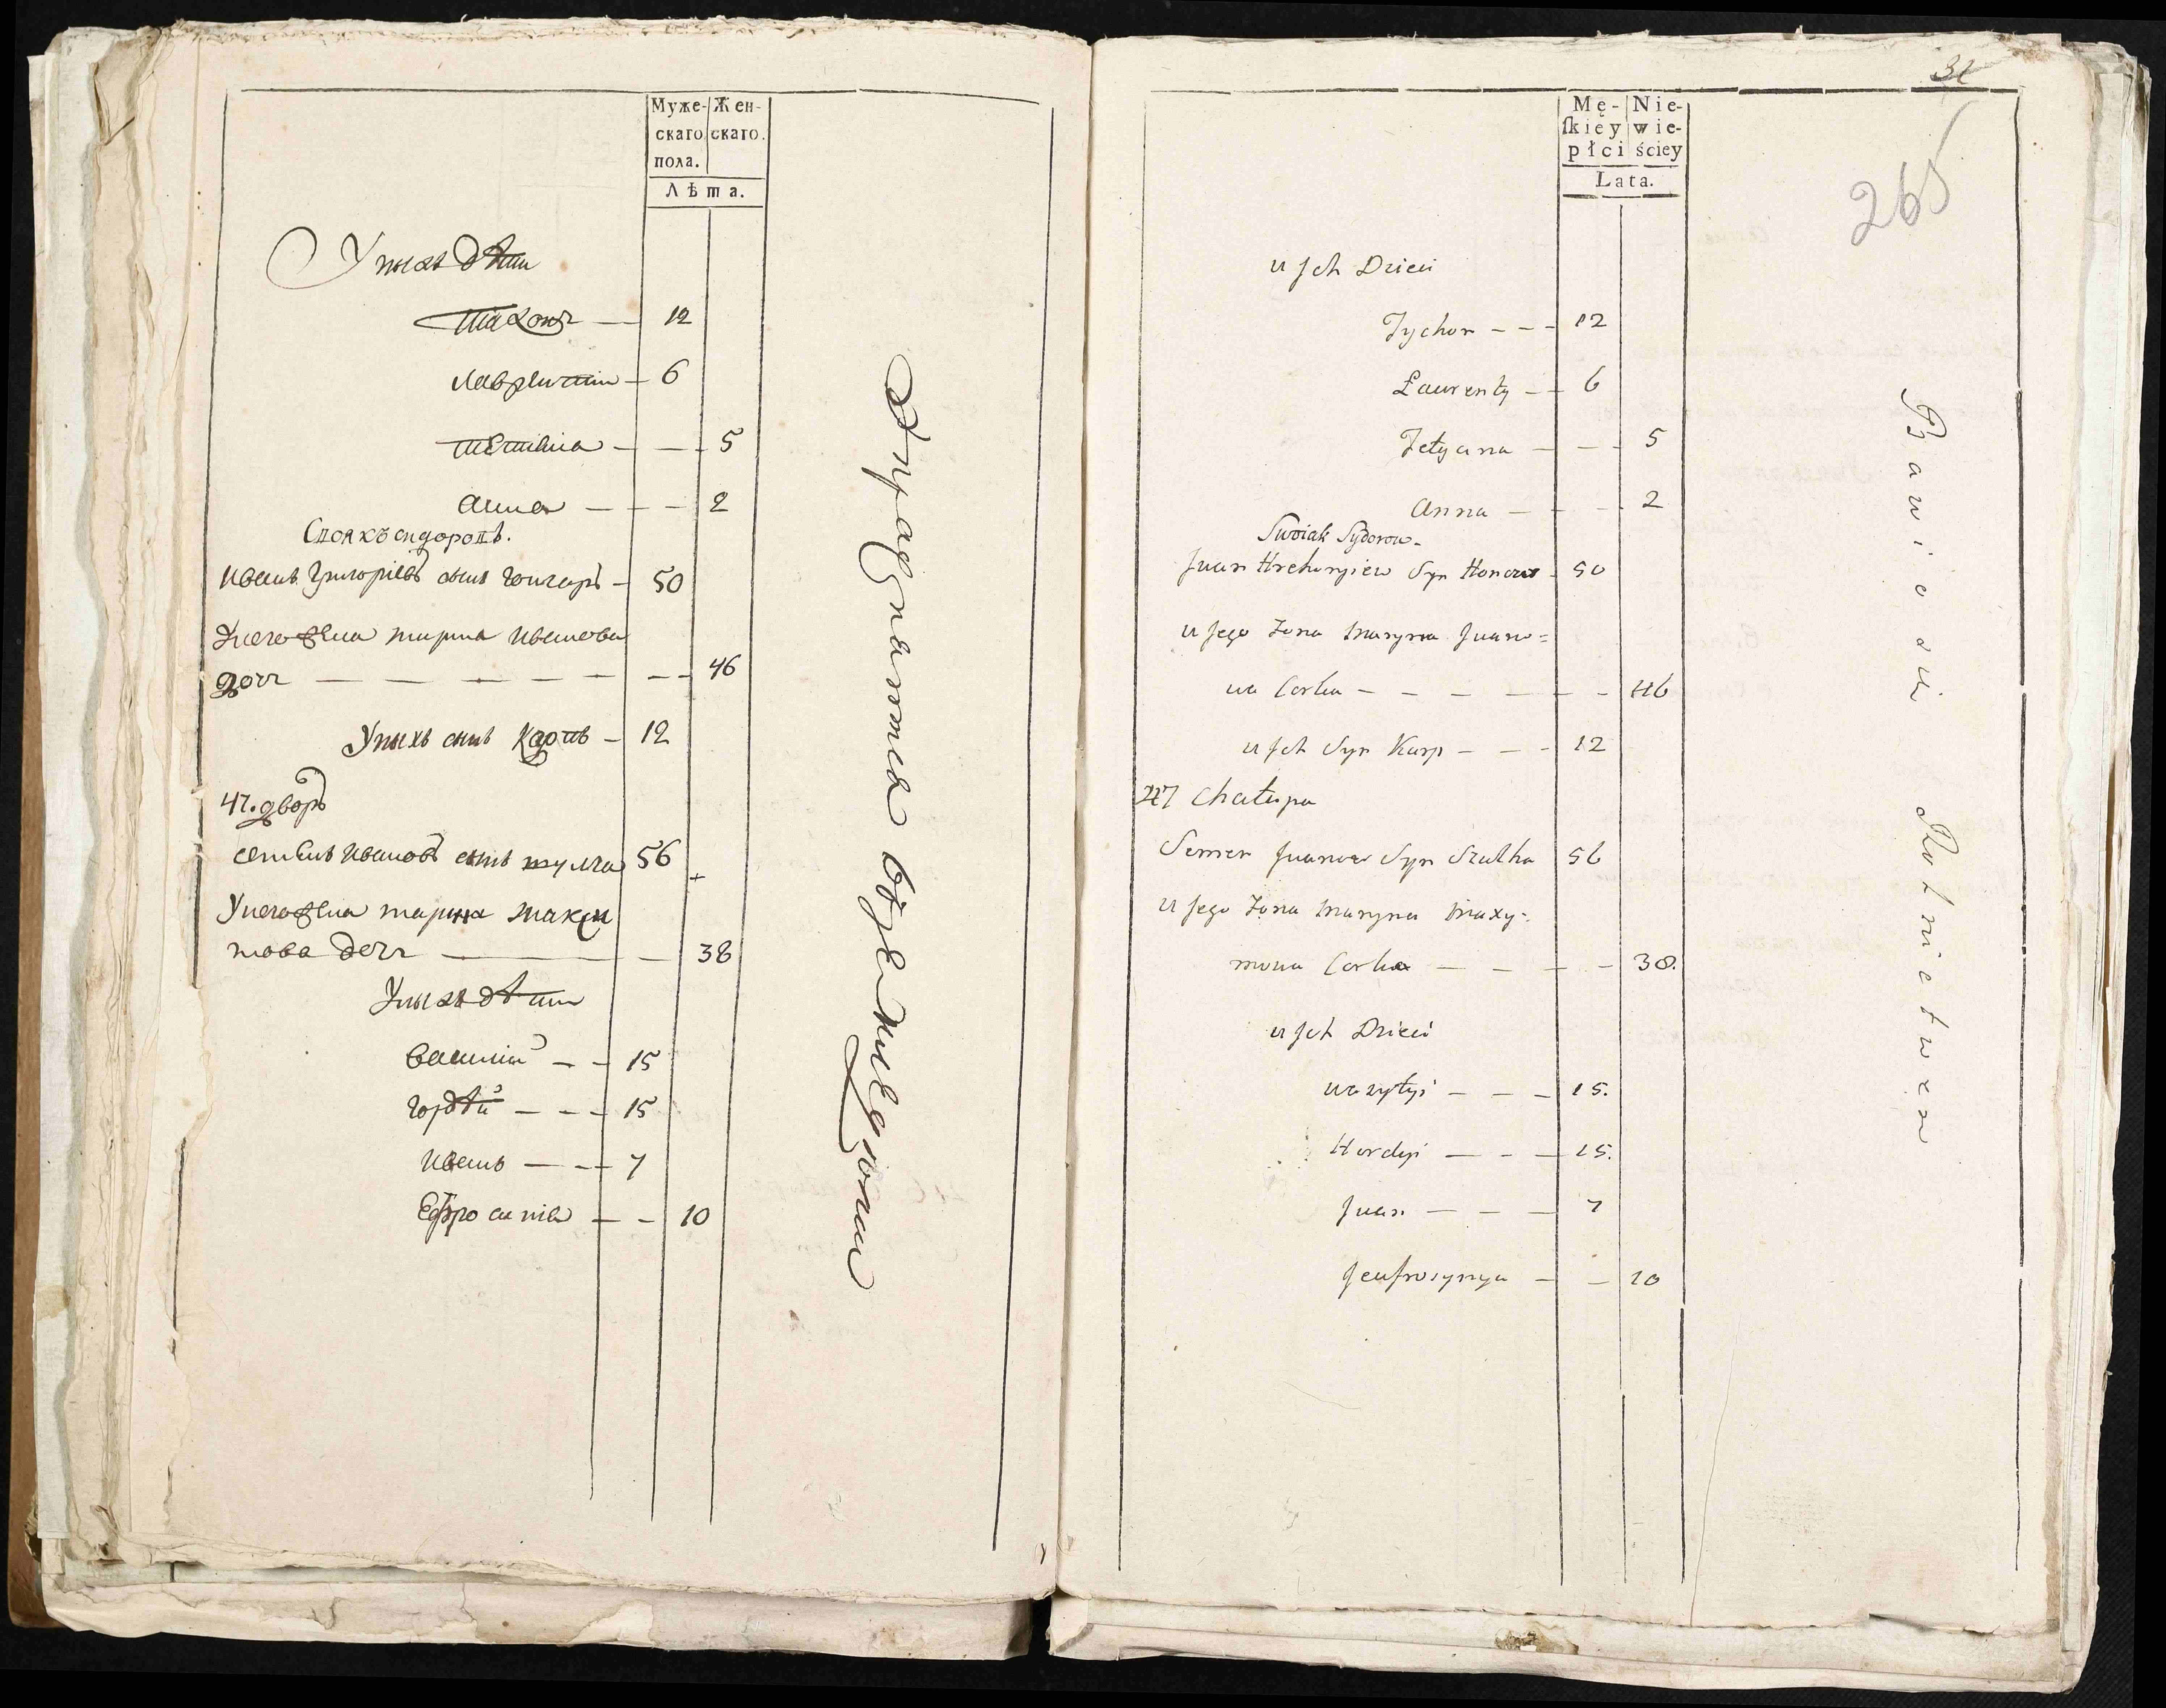 Муже-
скаго
пола.
Жен-
скаго.
Лѣта.
У ныхъ дѣти
Тихонъ — 12
Лаврентии — 6
Тетияна — — — 5
Анна — — — 2
Своякъ сидоровъ.
Иванъ Григориевъ сынъ Гончаръ — 50
У него жена Марина Иванова
дочь — — — — — — — — 46
У ныхъ сынъ Карпъ — 12
47. дворъ
Семенъ Ивановъ сынъ 56
У него жена Марина Макси
мова дочь — — 38
У ныхъ дѣти
Василий — — 15
Гордѣй — — — 15
Иванъ — — — 7
Ефросиния — — 10
32
265
Mę-
ſkiéy
płci
Nie-
wie-
ściey
Lata.
u Jch Dzieci
Tychon — — — 12
Laurenty — — 6
Tetyana — — — 5
Anna — — — 2
Swoiak Sydorow
Jwan Hrehoryiew Syn Honczar 50
u Jego Zona Maryna Jwano=
wa Corka — — — — — — 46
u Jch Syn Karp — — — 12
47 Chałupa
Semen Jwanow Syn Szulha 56
u Jego Zona Maryna Maxy=
mowa Corka — — — — 38.
u Jch Dzieci
Wasylyi — — — 15.
Hordyi — — — 15.
Jwan — — — 7
Jeufrosynya — — 10